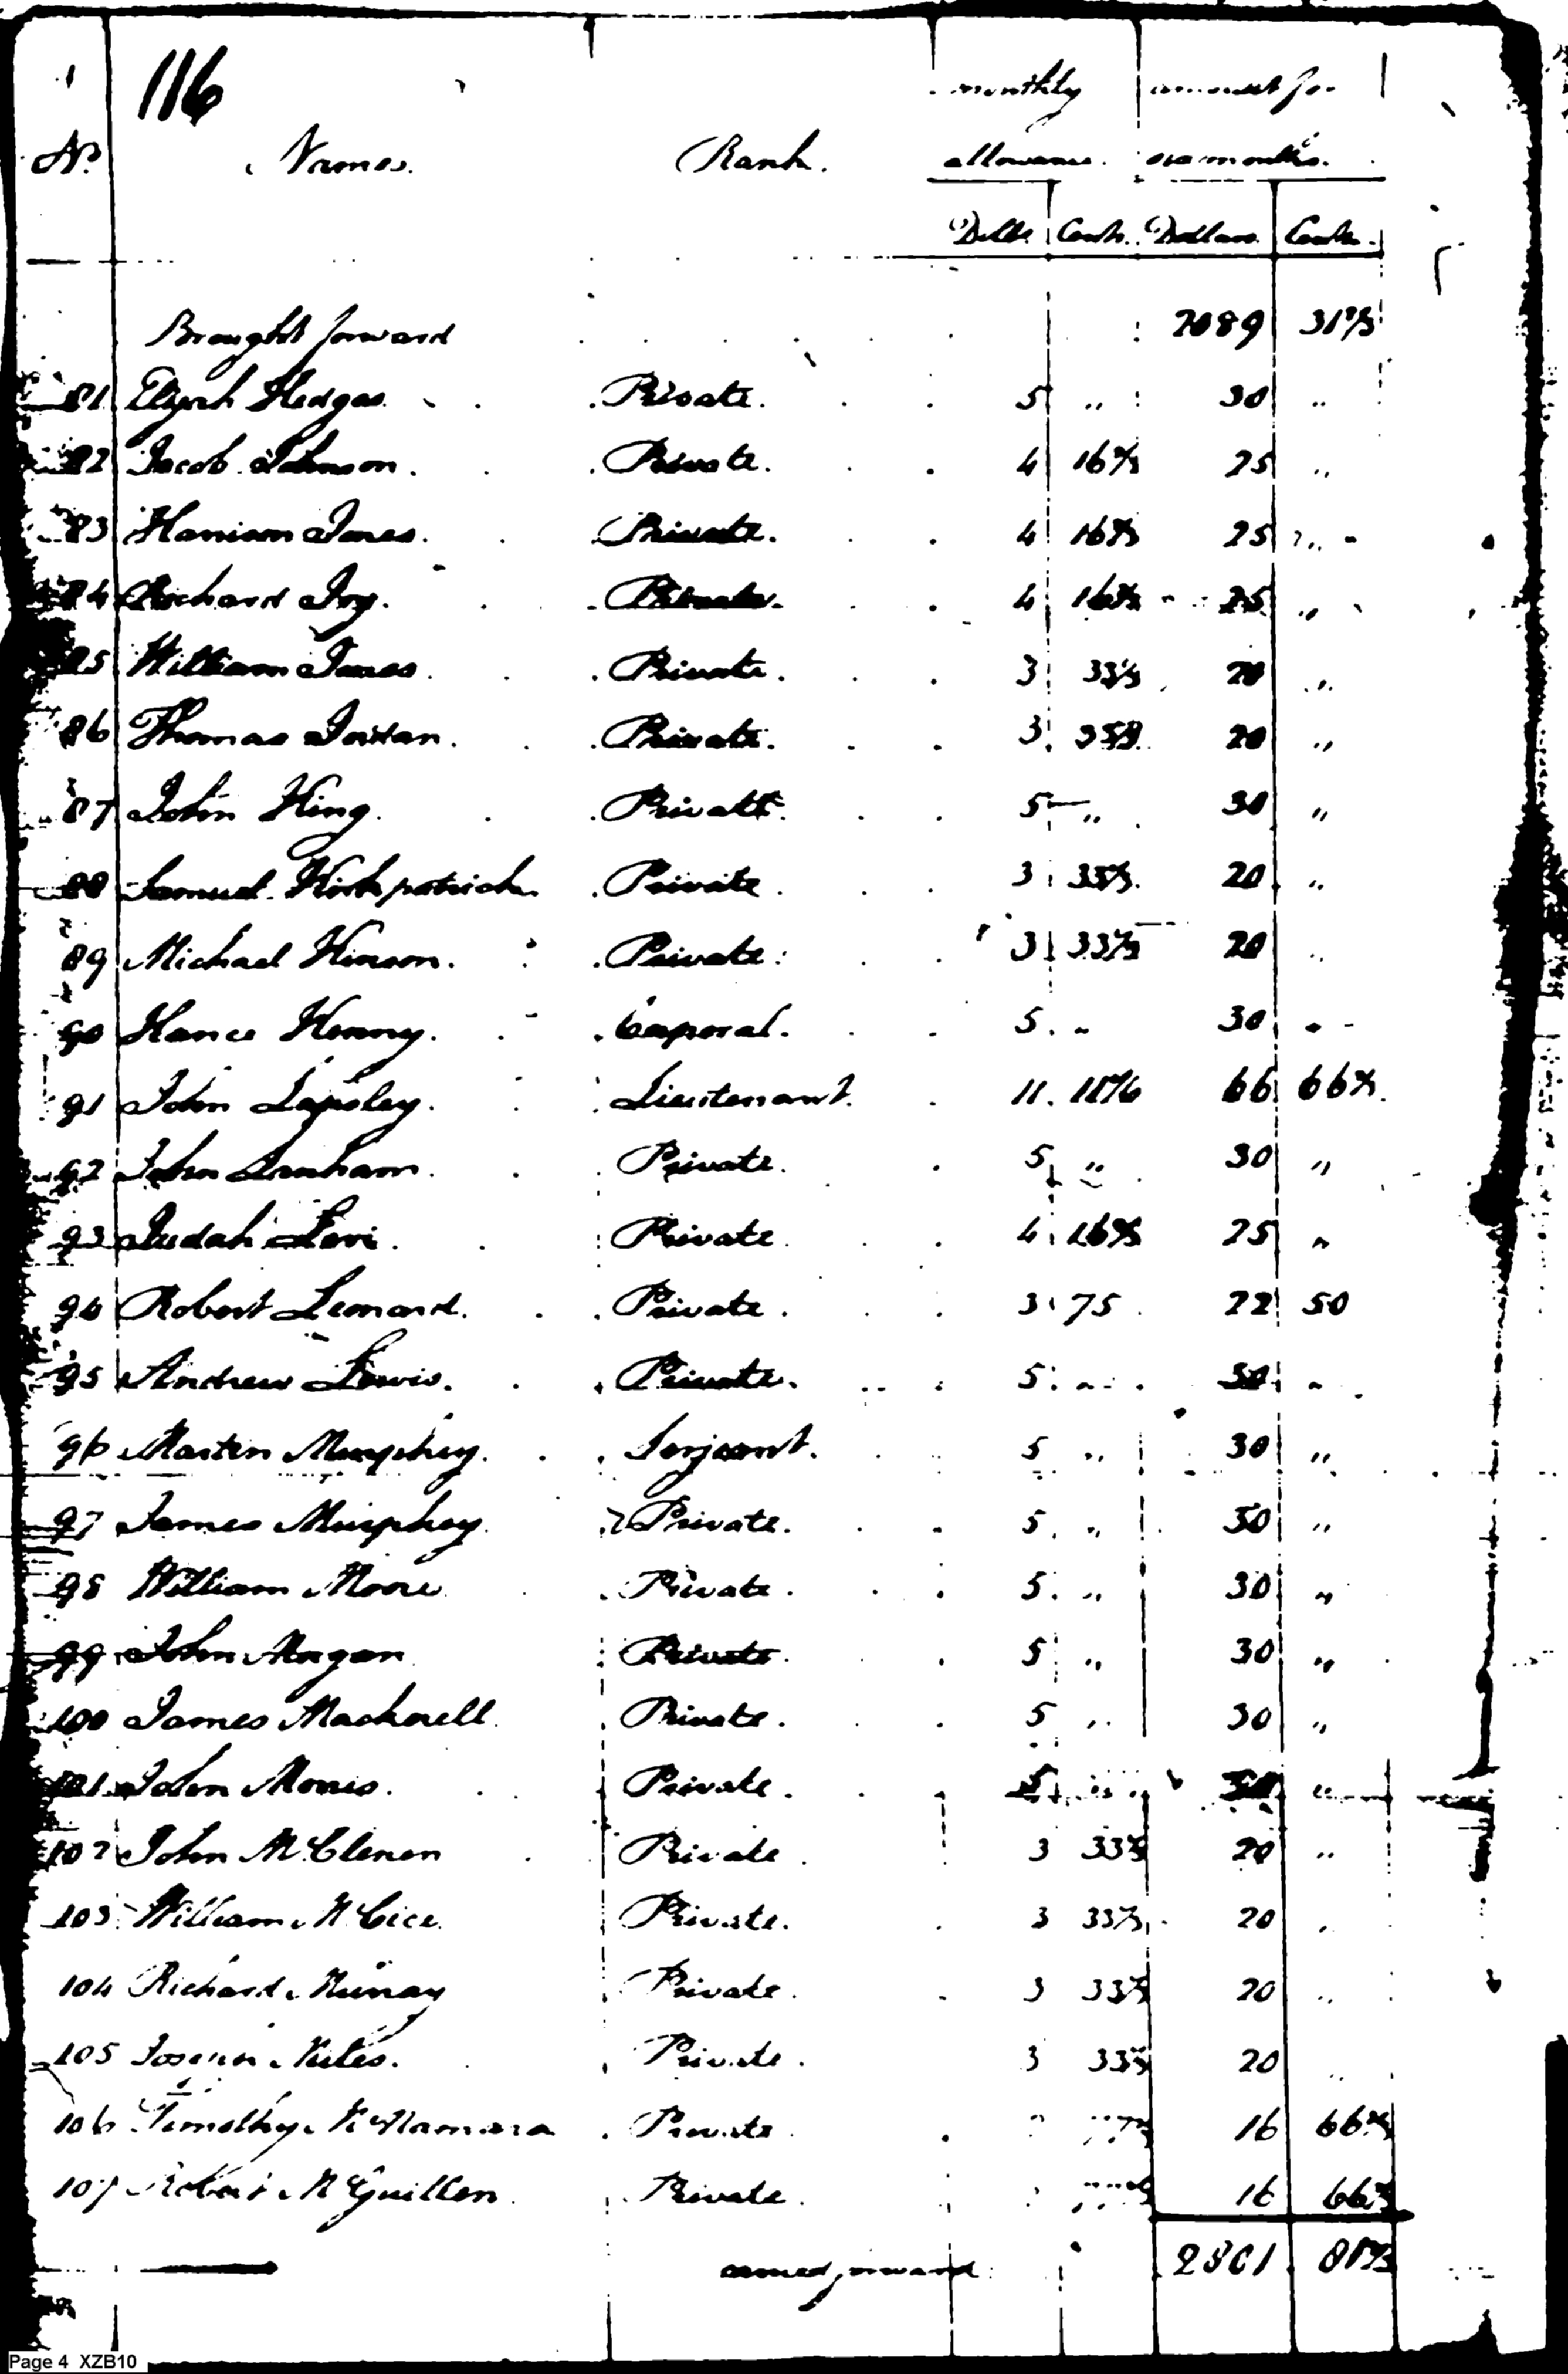 116
monthly amount for
No. Names. Rank. allowance. six months.
Dolls. Cents. Dollars. Cents.
Brought forward 2089 31 2/3
81 Elijah Hedges Private. 5 " 30 "
82 Jacob Johnson. Private. 4 16 2/3 25 "
83 Harrison Jones. Private. 4 16 2/3 25 "
84 Richard Ivy. Private. 4 16 2/3 25 "
85 William Jones. Private. 3 33 1/3 20 "
86 Thomas Jordan. Private. 3 33 1/3 20 "
87 John King. Private. 5 " 30 "
88 Samuel Kirkpatrick. Private. 3 33 1/3 20 "
89 Michael Hinson. Private. 3 33 1/3 20 "
90 Hance Kenny. Corporal. 5 " 30 "
91 John Lapsley. Lieutenant. 11. 66 66 2/3
92 John Private. 5 " 30 "
93 Judah Levi. Private 4 16 2/3 25 "
94 Robert Leonard. Private. 3 75 22 50
95 Andrew Lewis. Private. 5 " 30 "
96 Martin Murphey. Serjeant. 5 " 30 "
97 James Murphey. Private. 5 " 30 "
98 William Moore Private. 5 " 30 "
99 John Private. 5 " 30 "
100 James Macknell Private. 5 " 30 "
101 John Morris. Private. 5 " 30 "
102 John McClenen Private. 3 33 1/3 20 "
103 William McCice Private. 3 33 1/3 20 "
104 Richard Murray Private. 3 33 1/3 20 "
105 Private. 3 33 1/3 20 "
106 Timothy McNamara Private 16 66 2/3
107 Robert McGuillen. Private. 16 66 2/3
carried forward 2801 81 2/3
Page 4 XZB10